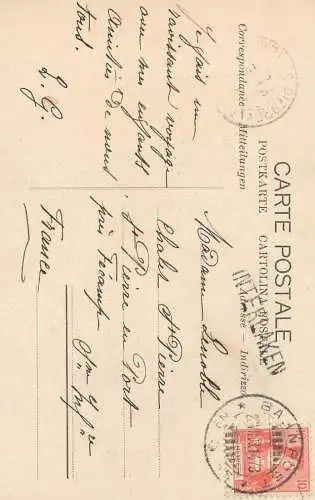 CARTE POSTALE
POSTKARTE CARTOLINA POSTALE
Correspondance — Mitteilungen
Adresse — Indirizzo
INTERLAKEN
Je fais un
ravissant voyage
avec mes enfants
Amitiés de nous
tous.
L. G.
Madame Lenoble
Chalet St Pierre
St Pierre en Port
près Fécamp
France
BAHNPOST
10